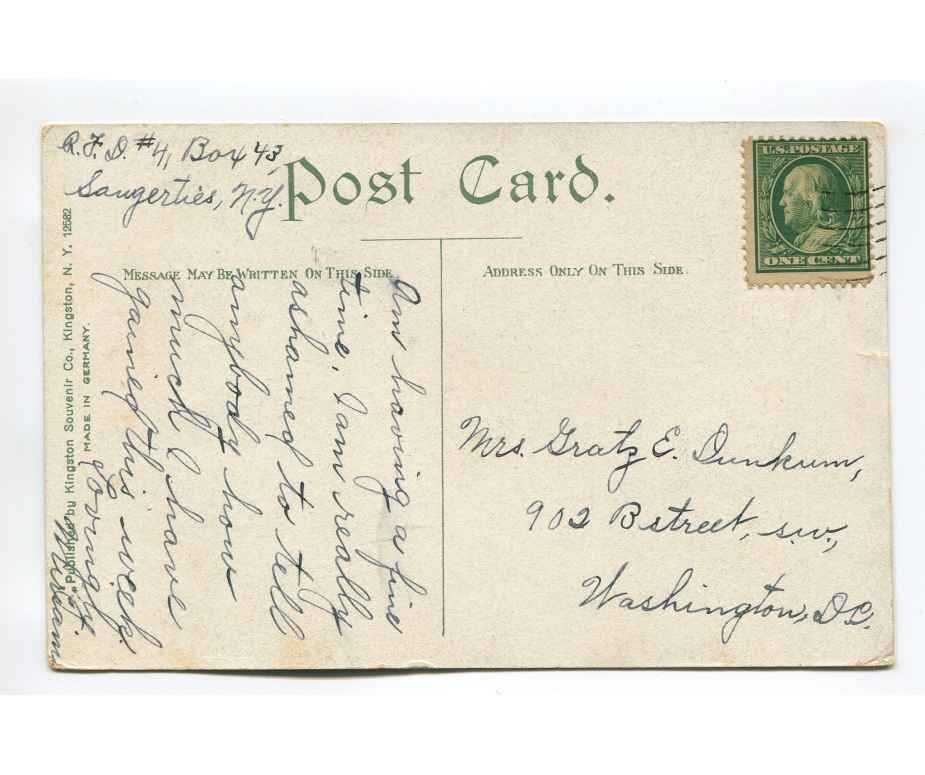 R.F.D. #4, Box 43,
Saugerties, N.Y.
Post Card.
MESSAGE MAY BE WRITTEN ON THIS SIDE
ADDRESS ONLY ON THIS SIDE.
U.S. POSTAGE
ONE CENT
Am having a fine
time, I am really
ashamed to tell
anybody how
much I have
gained this week.
Lovingly.
Miriam
Mrs. Gratz E. Dunkum,
902 B street, s.w.,
Washington, D.C.
Published by Kingston Souvenir Co., Kingston, N. Y. 12582
MADE IN GERMANY.